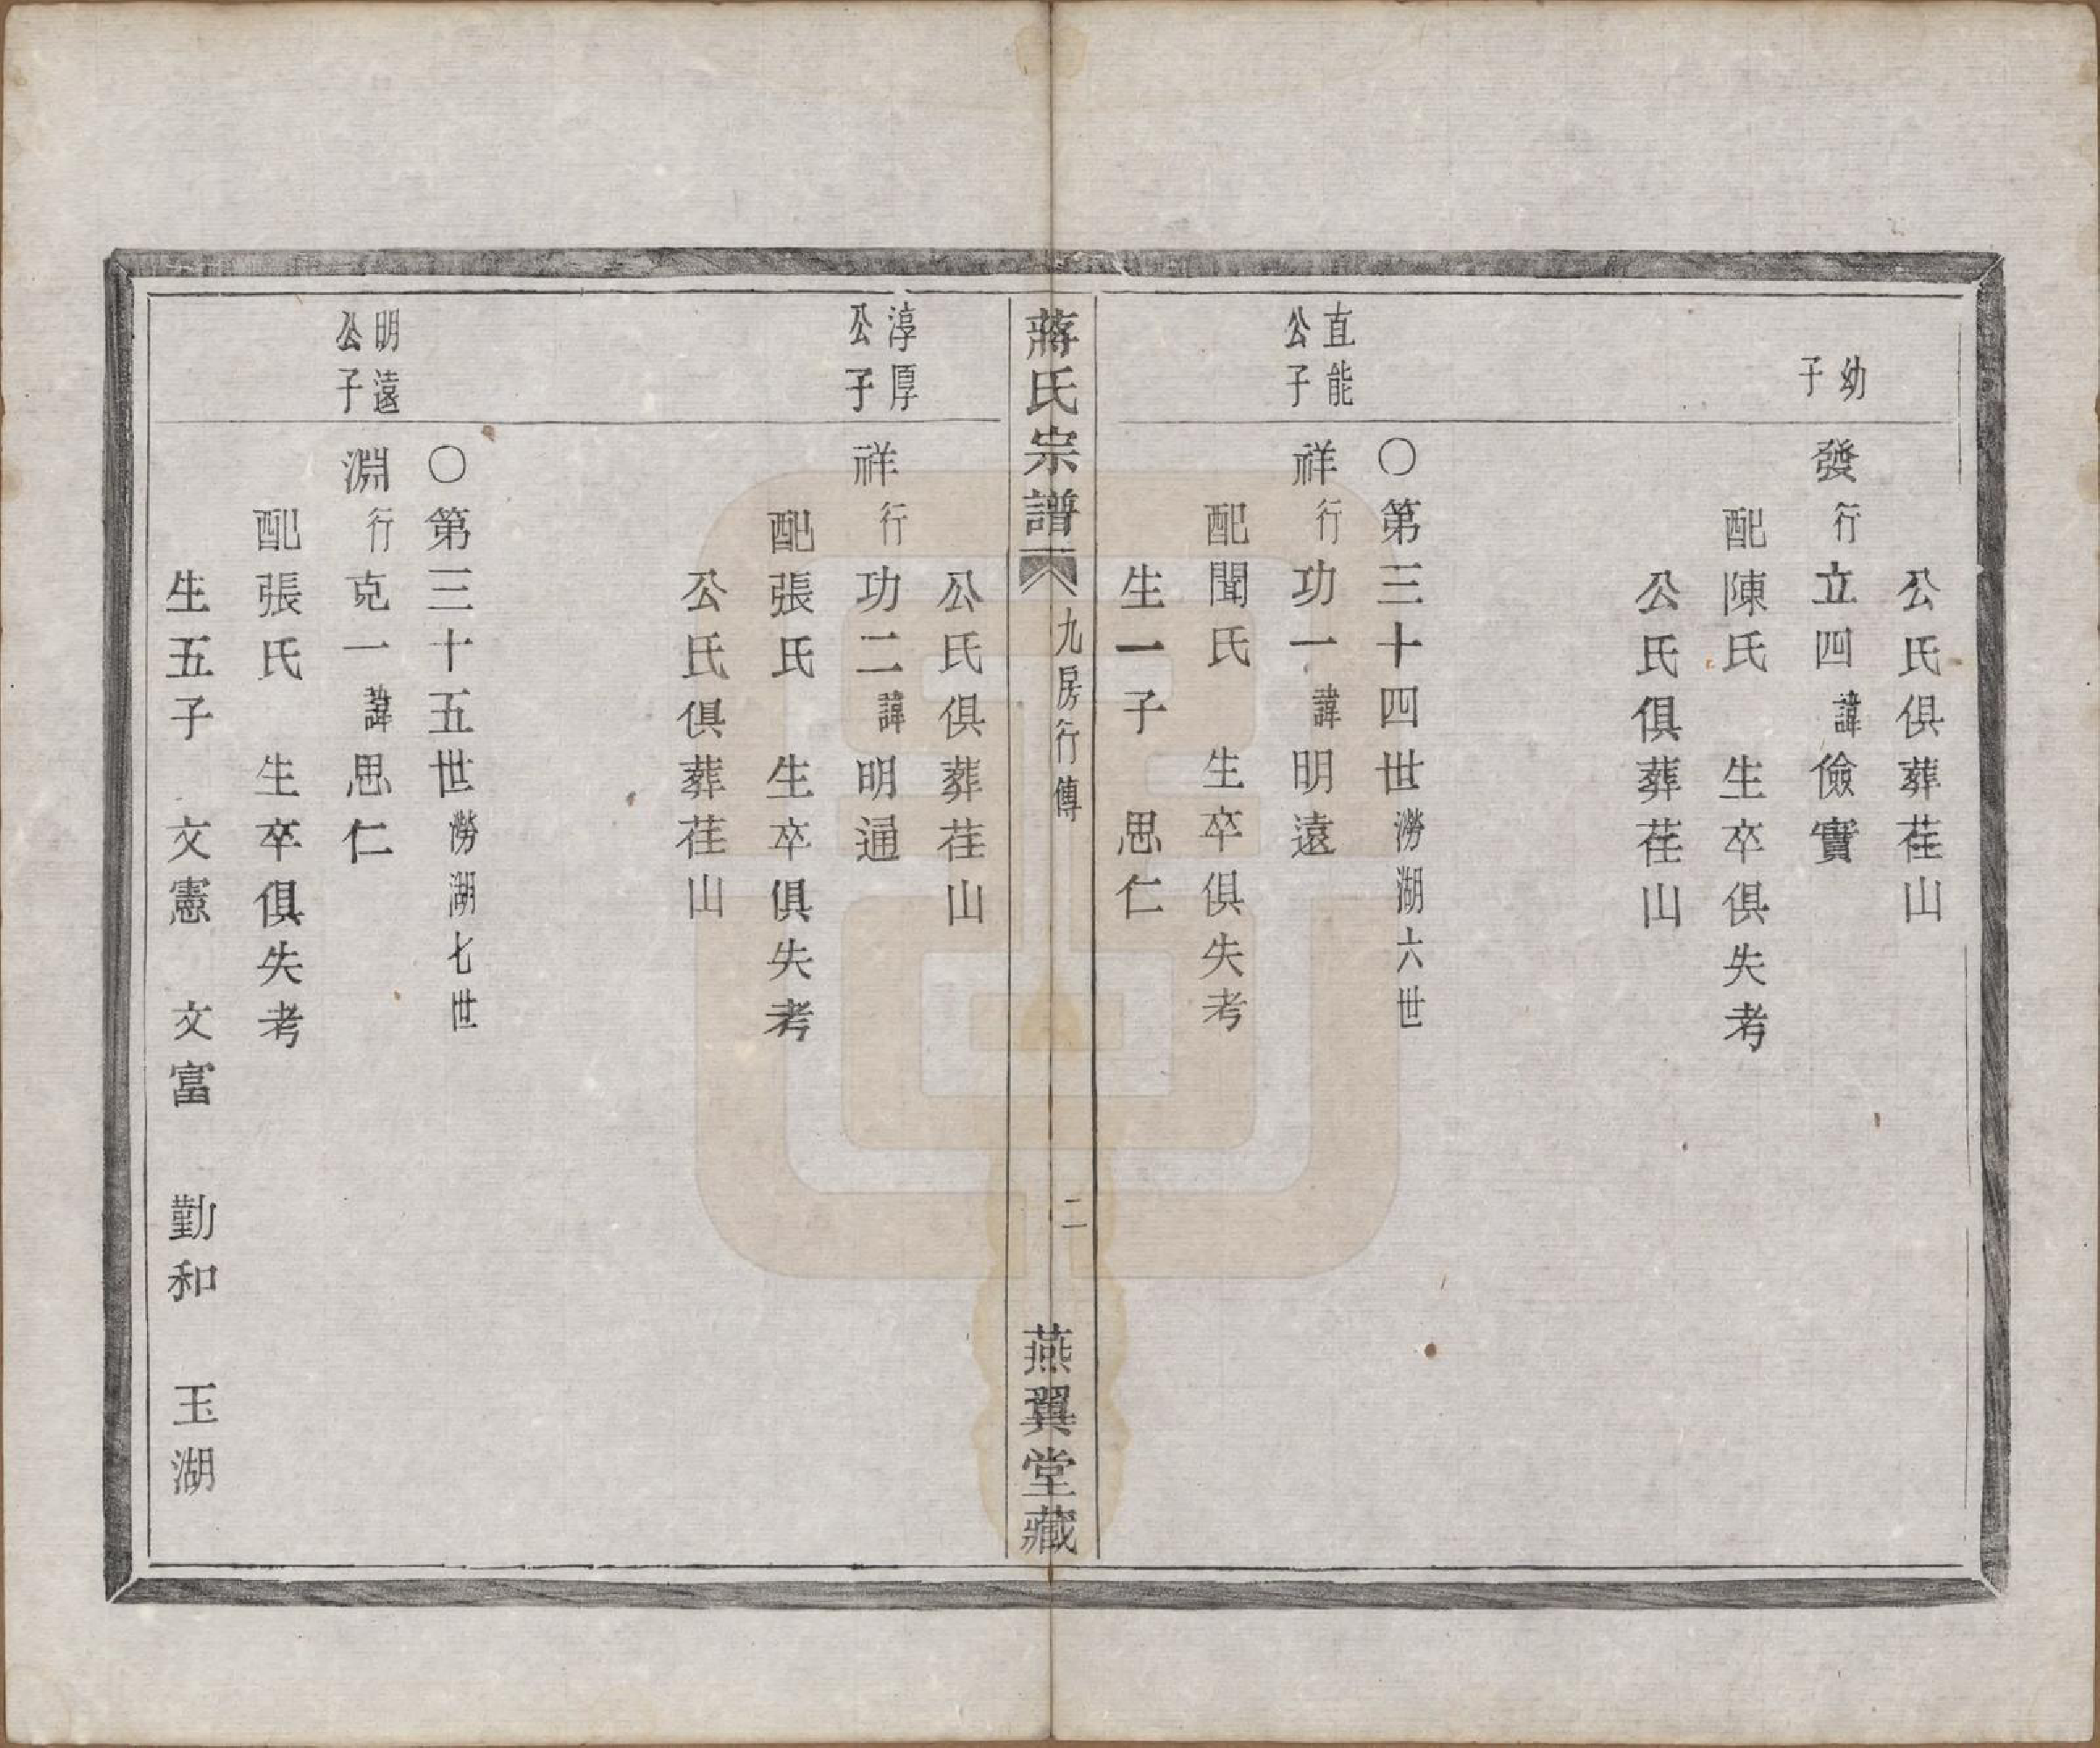 公氏俱葬荏山
幼子
發行立四諱儉實
配陳氏　生卒俱失考
公氏俱葬荏山
〇第三十四世澇湖六世
直能公子
祥行功一諱明遠
配聞氏　生卒俱失考
生一子　思仁
蔣氏宗譜　九房行傳　二　燕翼堂藏
公氏俱葬荏山
淳厚公子
祥行功二諱明通
配張氏　生卒俱失考
公氏俱葬荏山
〇第三十五世澇湖七世
明遠公子
淵行克一諱思仁
配張氏　生卒俱失考
生五子　文憲　文富　勤和　玉湖